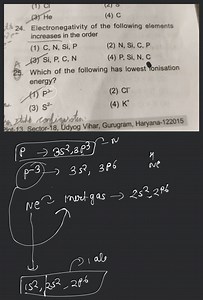 (3) He (4) C
24. Electronegativity of the following elements
increases in the order
(1) C, N, Si, P (2) N, Si, C, P
(3) Si, P, C, N (4) P, Si, N, C
25. Which of the following has lowest ionisation
energy?
(1) P³⁻ (2) Cl⁻
(3) S²⁻ (4) K⁺
Sector-18, Udyog Vihar, Gurugram, Haryana-122015
P → 3s², 3p³
P⁻³ → 3s², 3p6
Ne
Ne → Inert gas → 2s², 2p6
1s², 2s², 2p6